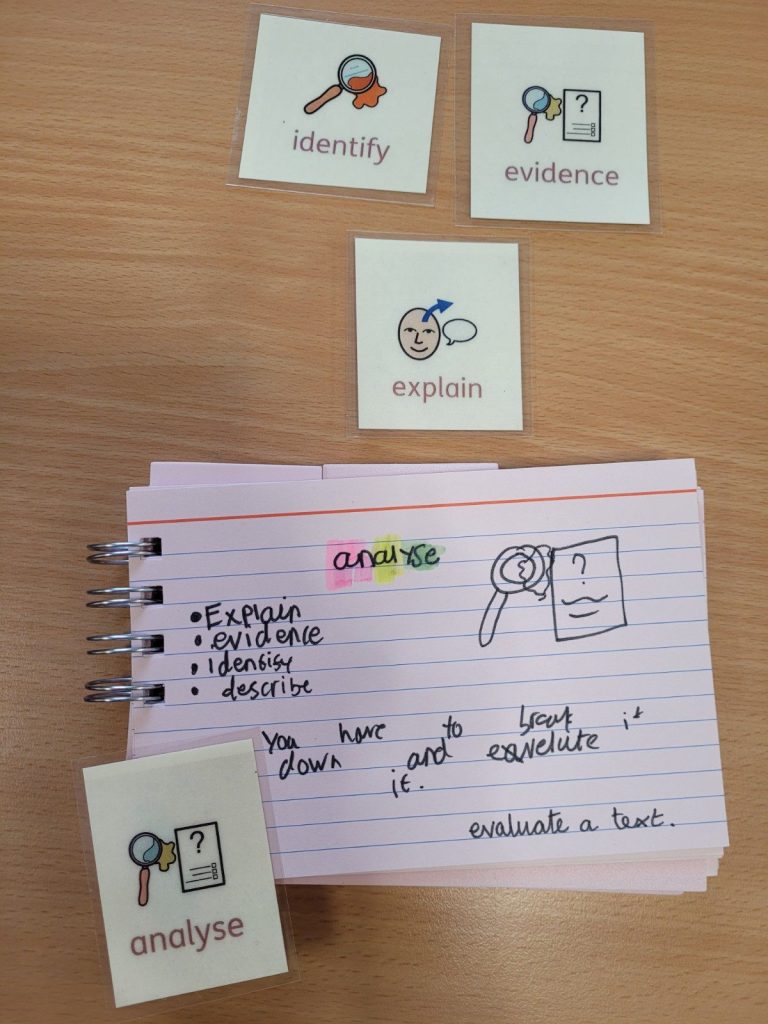 identify
?
evidence
explain
analyse
?
• Explain
• evidence
• Idensisy
• describe
You have to break it
down and
it.
evaluate a text.
?
analyse